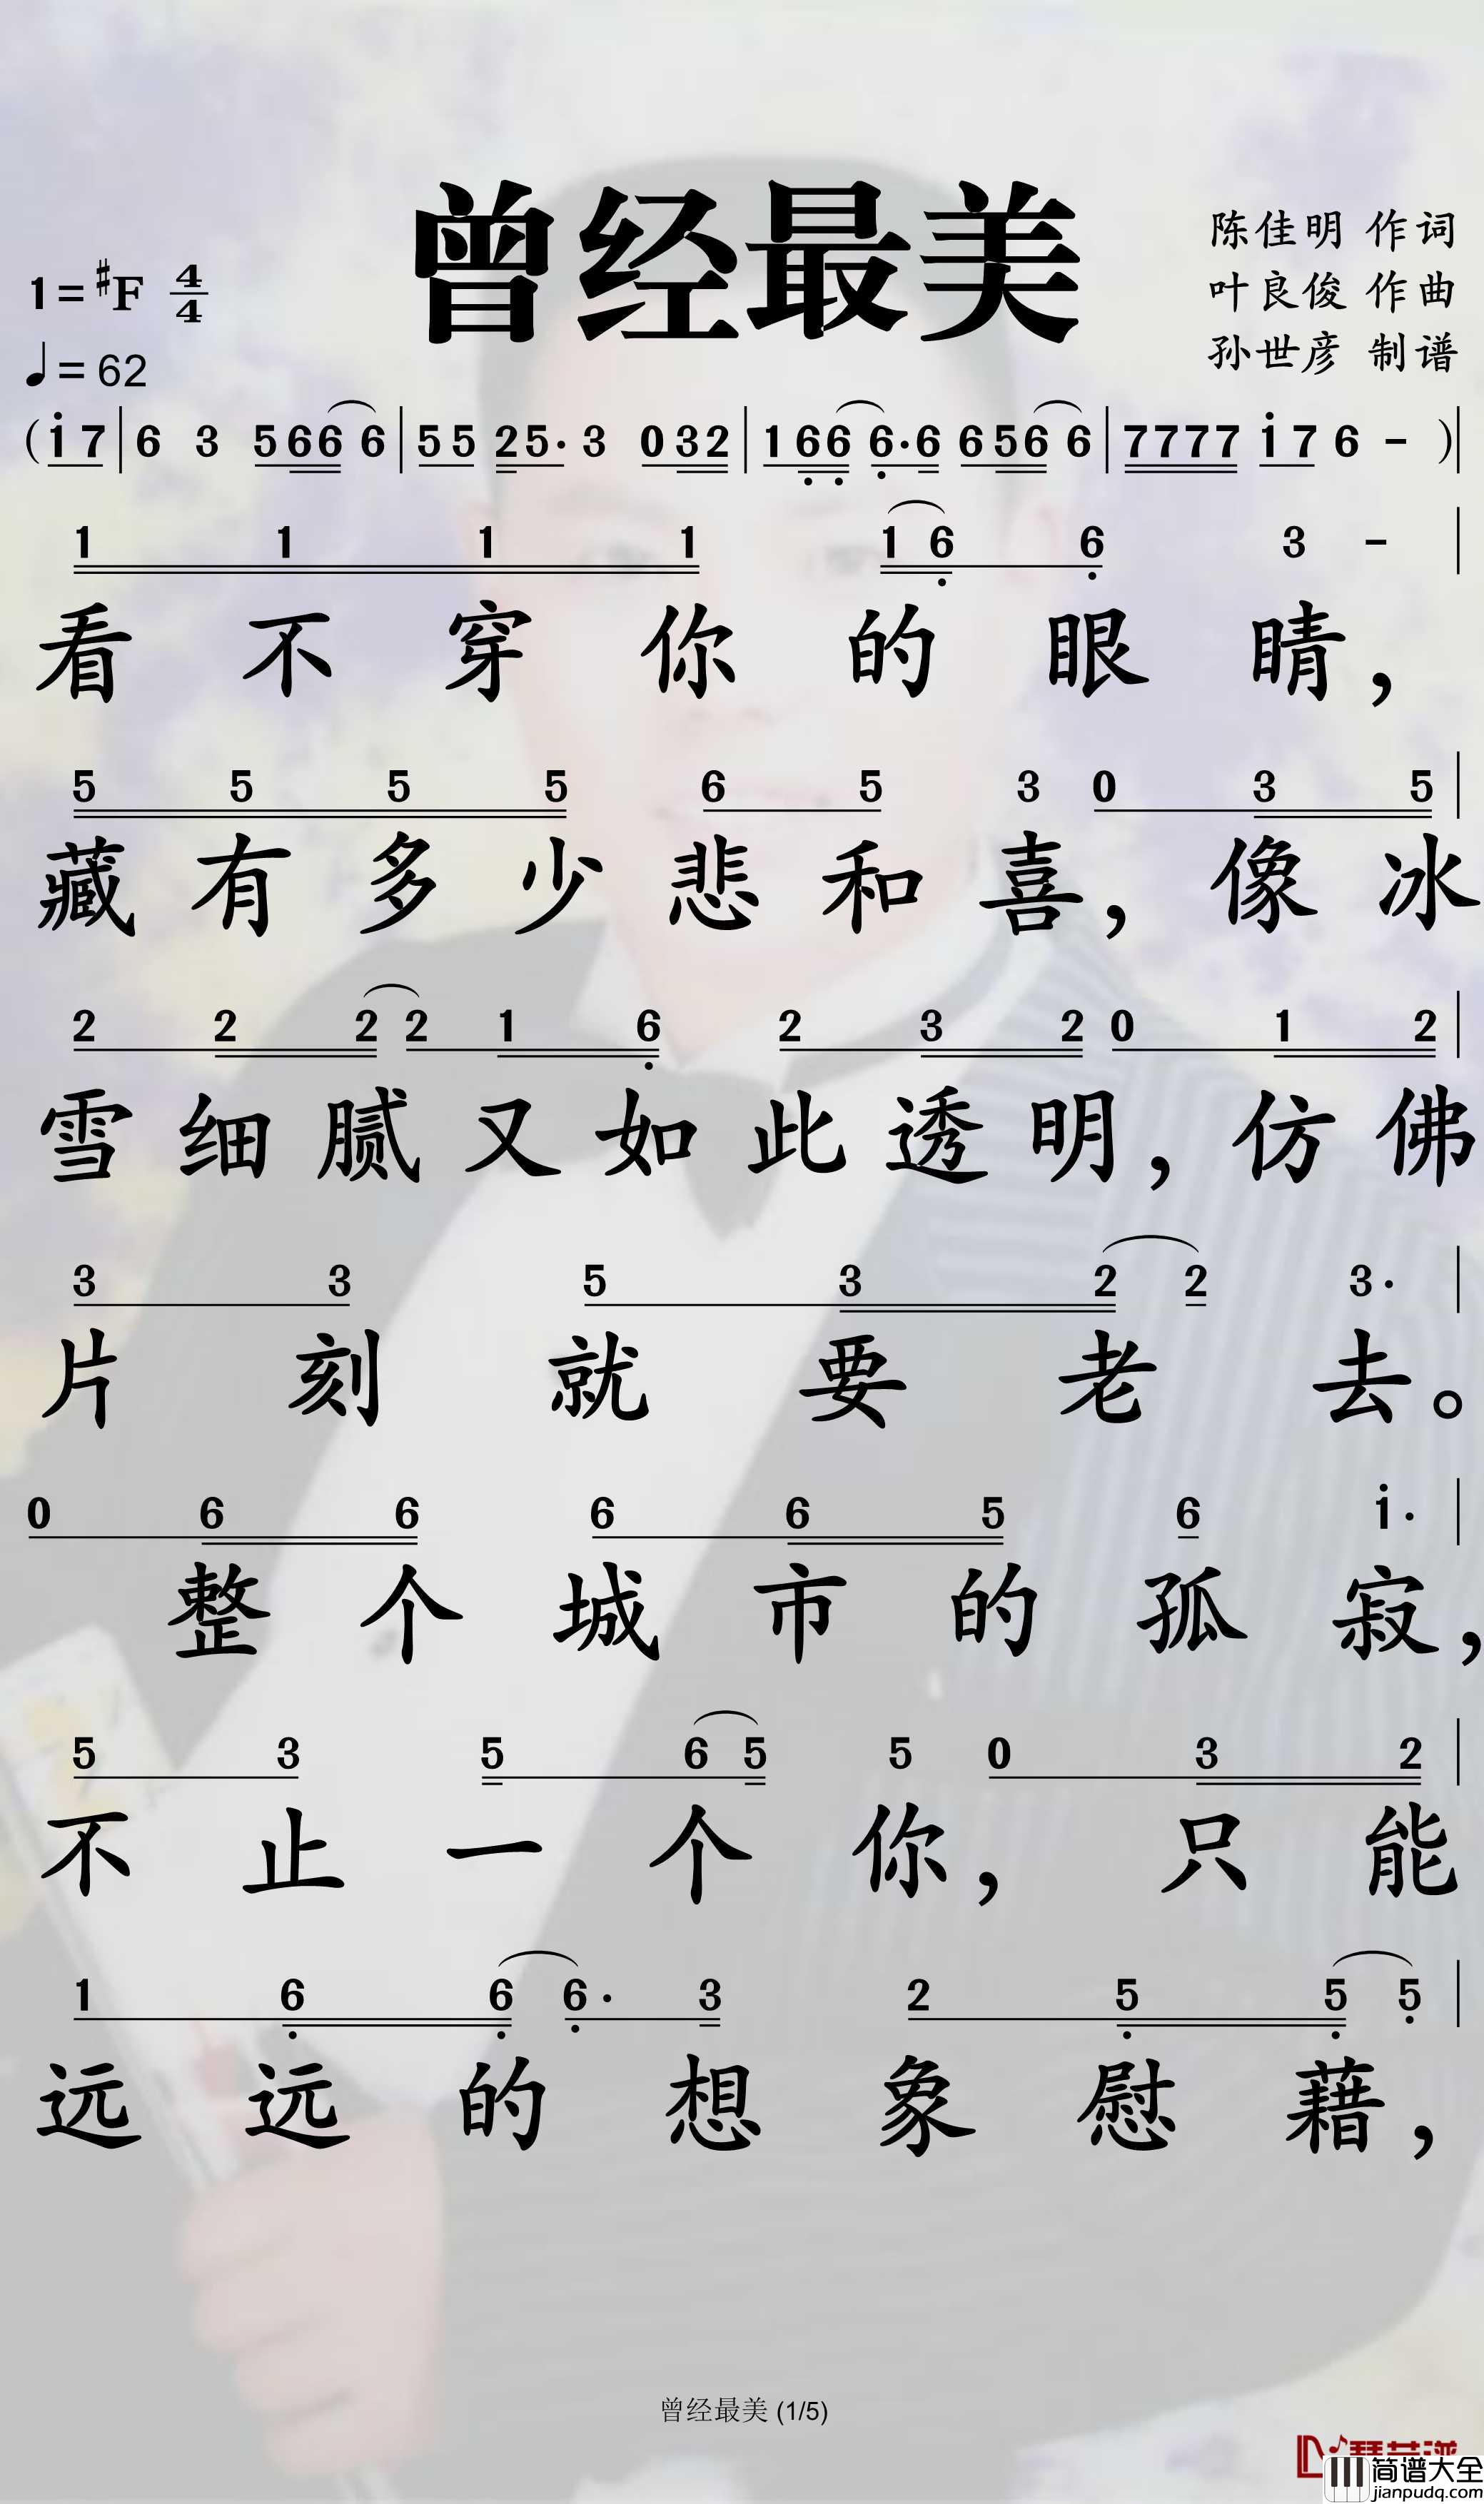 曾经最美
陈佳明 作词
叶良俊 作曲
孙世彦 制谱
1=#F 4/4
♩=62
(i7|63 5666|5525·3 032|1666·6 6566|7777 i76-)|
1 1 1 1 16 6 3 -|
看不穿你的眼睛，
5 5 5 5 6 5 3 0 3 5|
藏有多少悲和喜，像冰
2 2 2 2 1 6 2 3 2 0 1 2|
雪细腻又如此透明，仿佛
3 3 5 3 2 2 3·|
片刻就要老去。
0 6 6 6 6 5 6 i·|
整个城市的孤寂，
5 3 5 6 5 5 0 3 2|
不止一个你，只能
1 6 6 6· 3 2 5 5 5|
远远的想象慰藉，
曾经最美 (1/5)
简谱大全
jianpudq.com